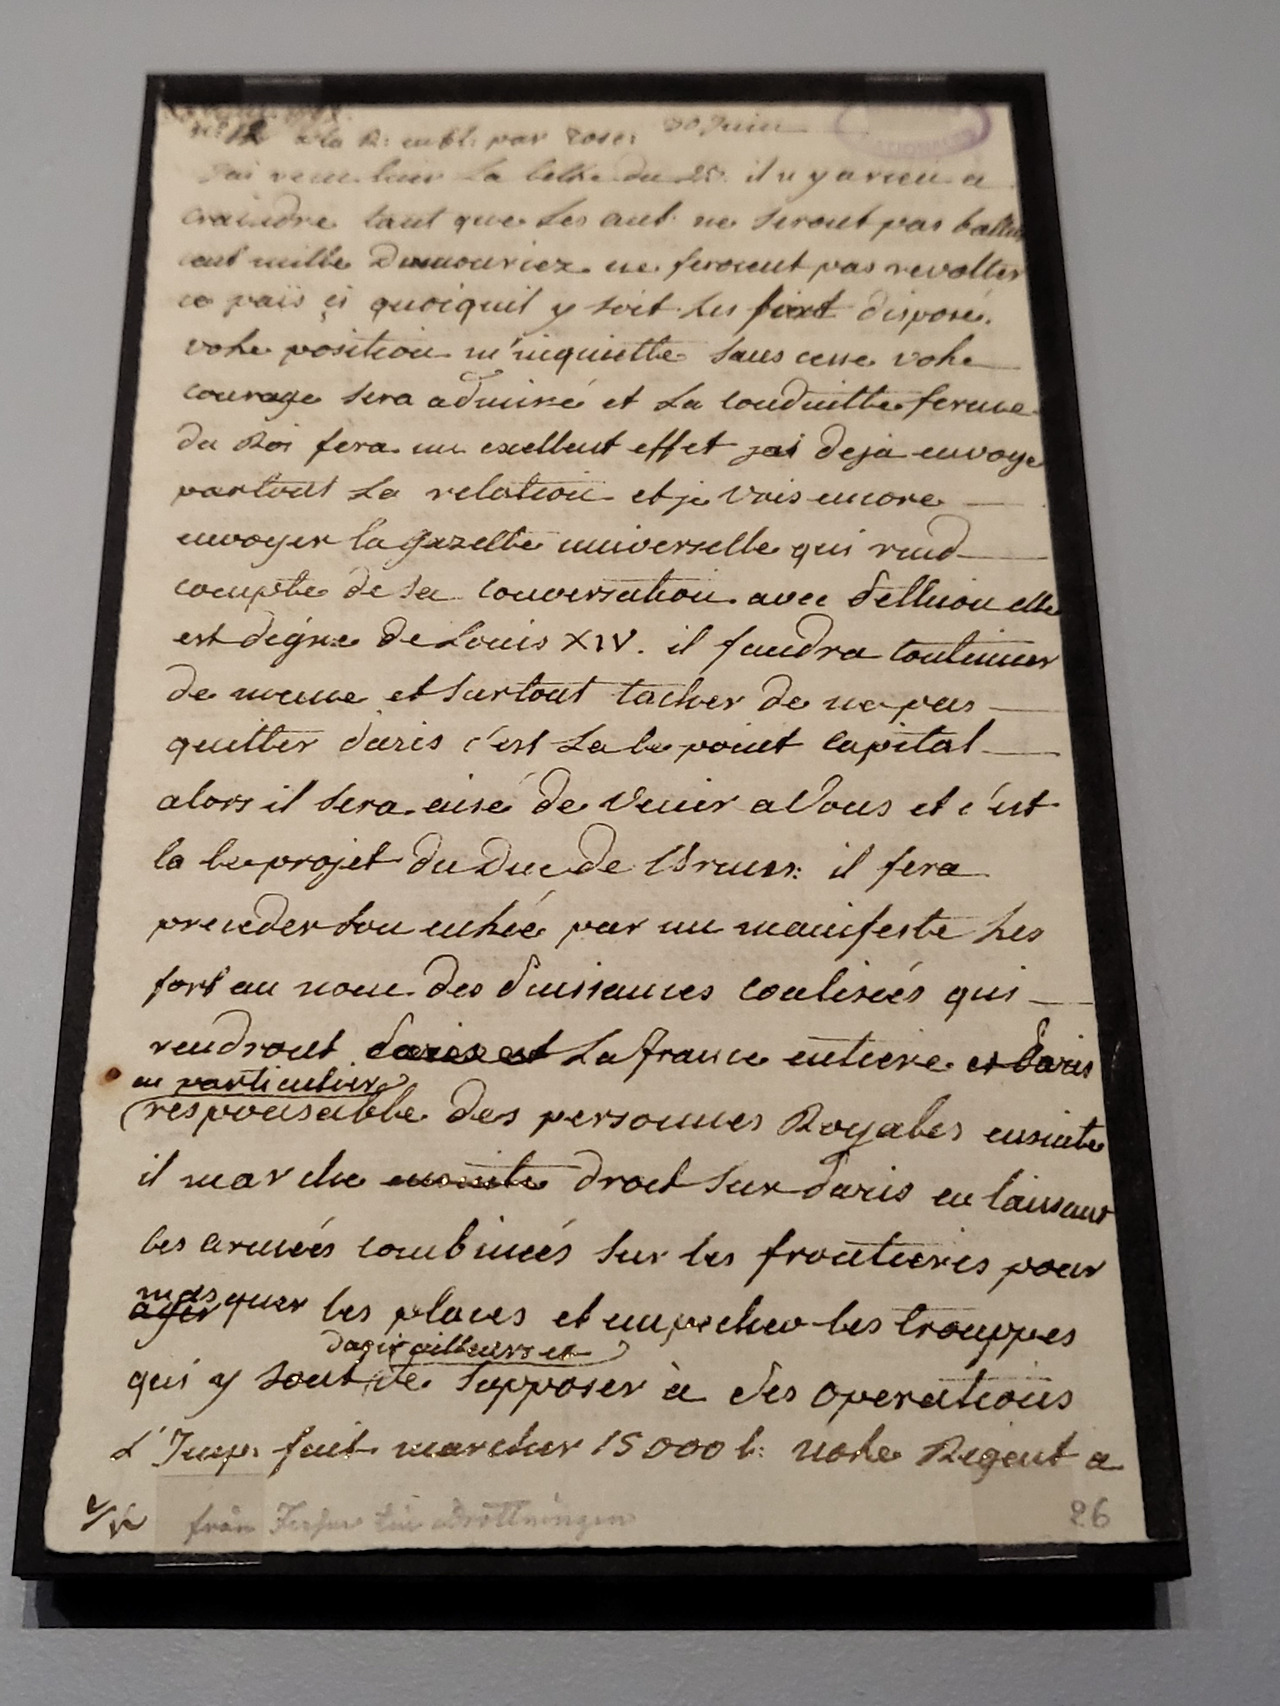 n° 12 a la R: en bl: par Tosc: 30 Juin
J'ai recu hier la lettre du 25. il n y a rien a
craindre tant que les aut: ne seront pas battus
cent mille Dumouriez ne feroient pas revolter
ce païs çi quoiquil y soit très fort disposé.
votre position m'inquiette sans cesse votre
courage sera admiré et la conduitte ferme
du Roi fera un exellent effet jai deja envoye
partout la relation et je vais encore
envoyer la gazette universelle qui rend
compte de sa conversation avec Pethion elle
est digne de Louis XIV. il faudra continuer
de meme et surtout tacher de ne pas
quitter Paris c'est la le point capital
alors il sera aisé de venir a vous et c'est
la le projet du Duc de Bruns: il fera
preceder son entrée par un manifeste tres
fort au nom des Puissances coalisées qui
rendront Paris et la france entiere et Paris
en particulier
responsable des personnes Royales ensuite
il marche ensuite droit sur Paris en laissant
les armées combinées sur les frontieres pour
masquer les places et empecher les trouppes
dagir ailleurs et
qui y sont de sopposer à ses operations
L'Imp: fait marcher 15000 h: notre Regent a
från Fersen till drottningen
26